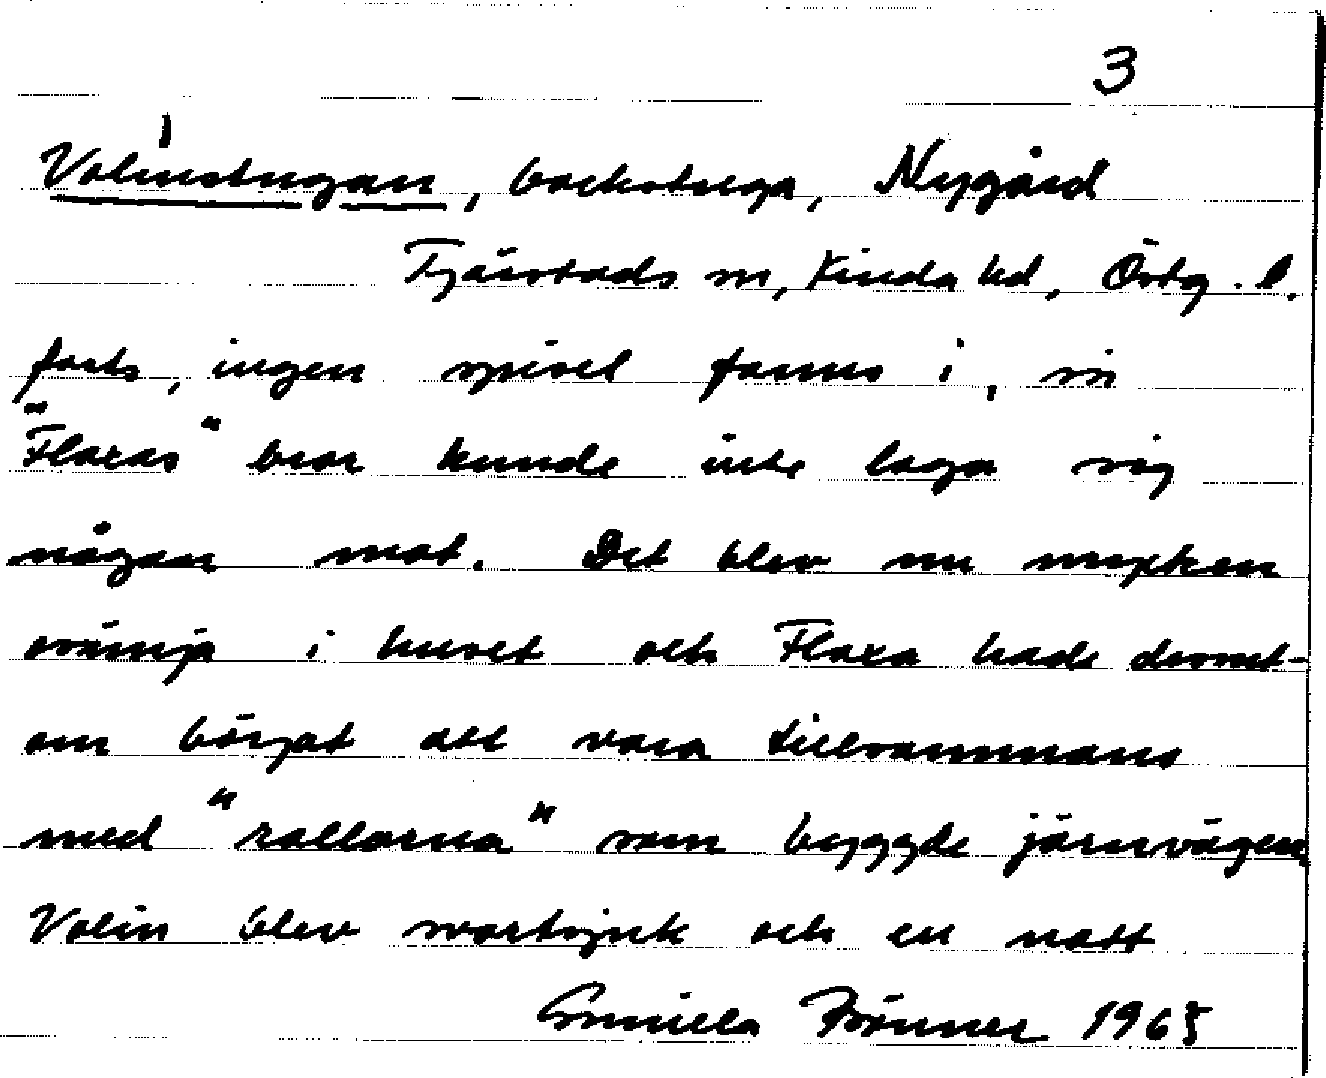 3
Valinstugan, backstuga, Nygård
Tjärstads sn, Kinda hd, Östg. l.
forts, ingen spisel fanns i, så
"Flaxas" bror kunde inte laga sig
någon mat. Det blev nu mycken
osämja i huset och Flaxa hade dessut-
om börjat att vara tillsammans
med "rallarna" som byggde järnvägen
Valin blev svartsjuk och en natt
Gunilla 1965